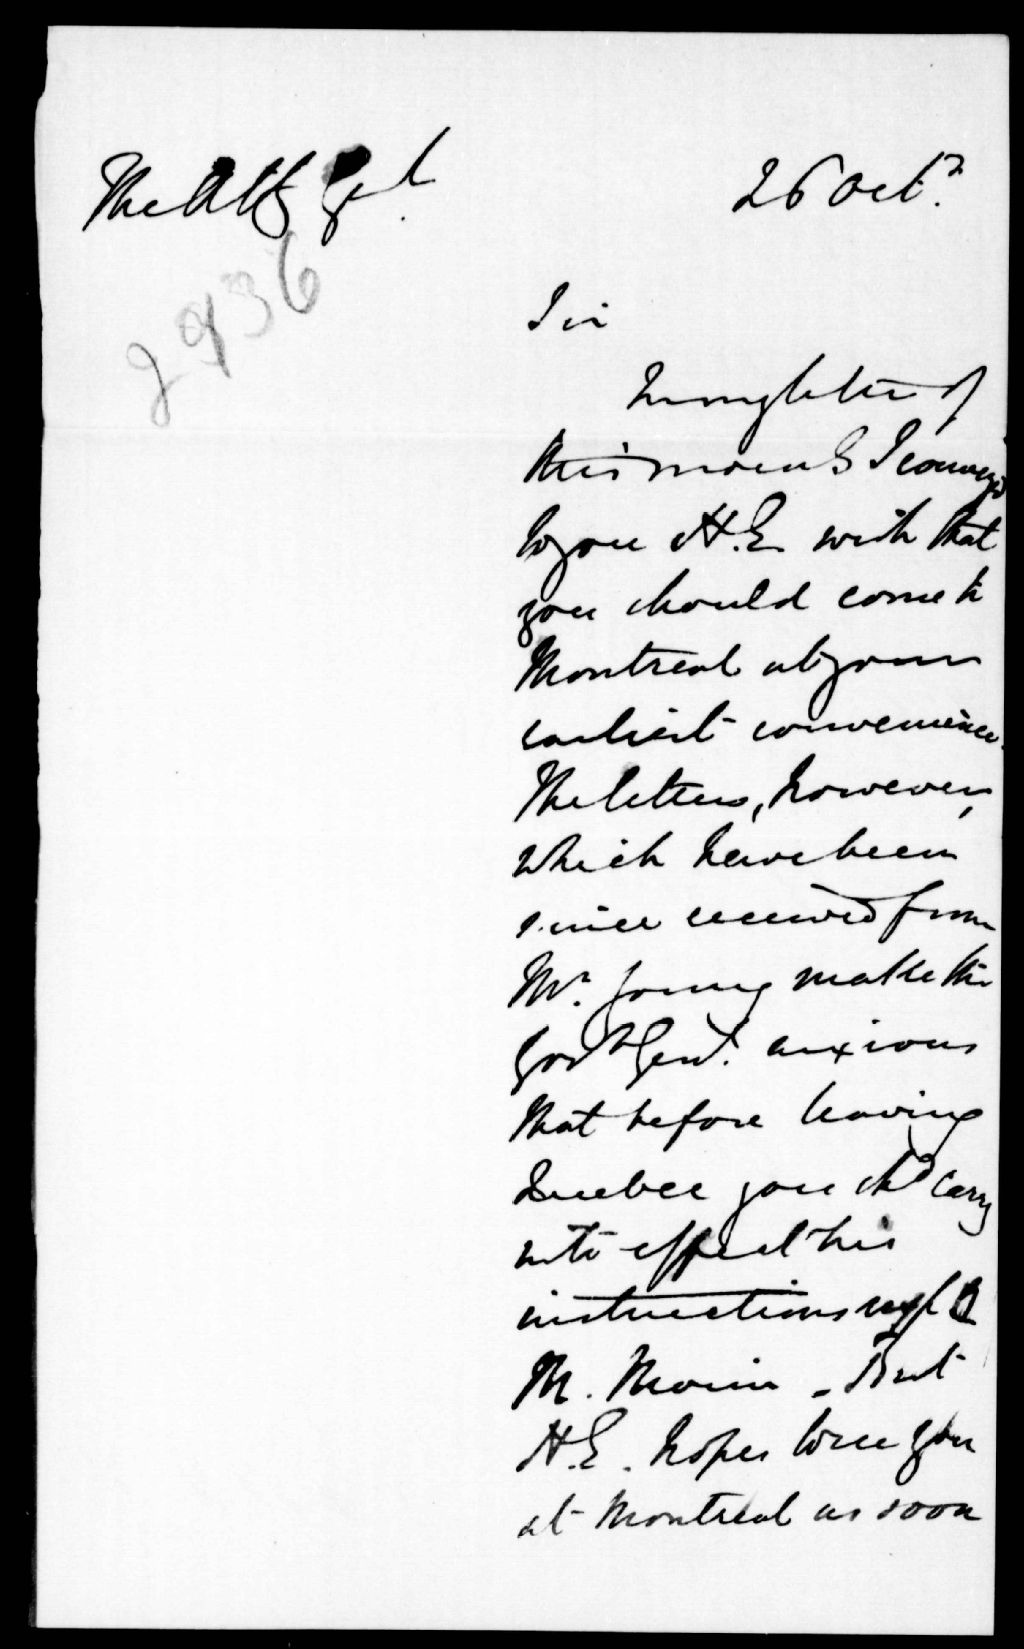 The Atty Genl.
26 Octr.
2936
Sir
In my letter of
this morng I conveyd
to you H.E. wish that
you should come to
Montreal at your
earliest convenience.
The letters, however,
which have been
since received from
Mr. Young make the
Govr Genl. anxious
that before leaving
Quebec you shd carry
into effect his
instructions
M. Morin - But
H.E. hopes to see you
at Montreal as soon